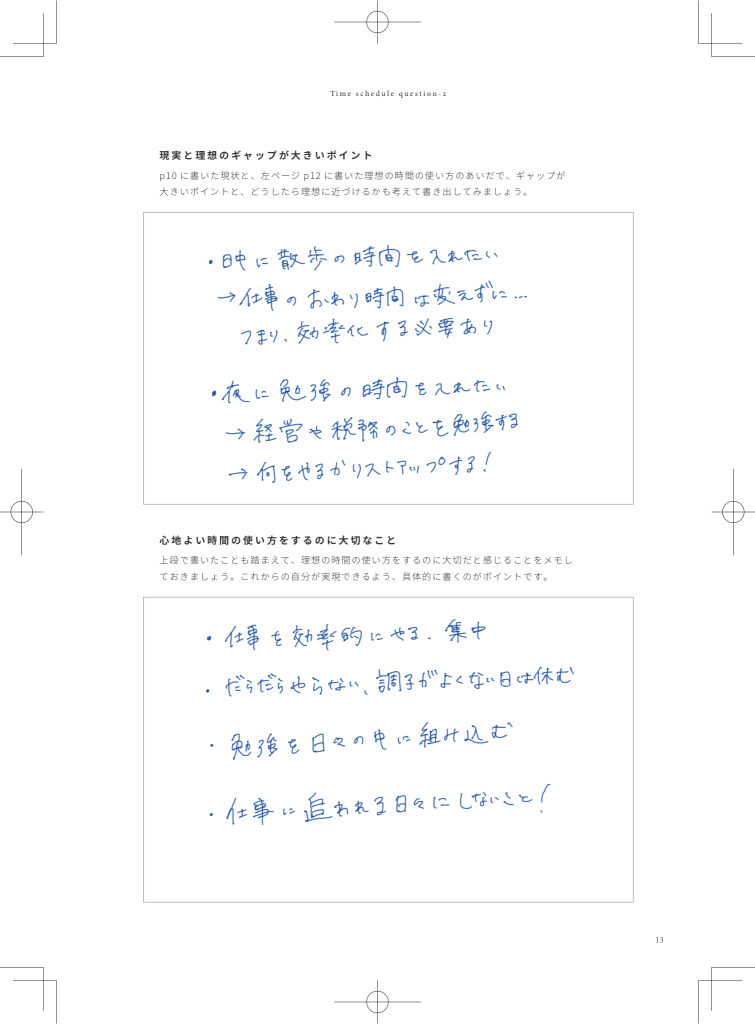 Time schedule question-2
現実と理想のギャップが大きいポイント
p10 に書いた現状と、左ページ p12 に書いた理想の時間の使い方のあいだで、ギャップが
大きいポイントと、どうしたら理想に近づけるかも考えて書き出してみましょう。
・日中に散歩の時間を入れたい
→仕事のおわり時間は変えずに…
つまり、効率化する必要あり
・夜に勉強の時間を入れたい
→経営や税務のことを勉強する
→何をやるかリストアップする!
心地よい時間の使い方をするのに大切なこと
上段で書いたことも踏まえて、理想の時間の使い方をするのに大切だと感じることをメモし
ておきましょう。これからの自分が実現できるよう、具体的に書くのがポイントです。
・仕事を効率的にやる、集中
・だらだらやらない、調子がよくない日は休む
・勉強を日々の中に組み込む
・仕事に追われる日々にしないこと!
13